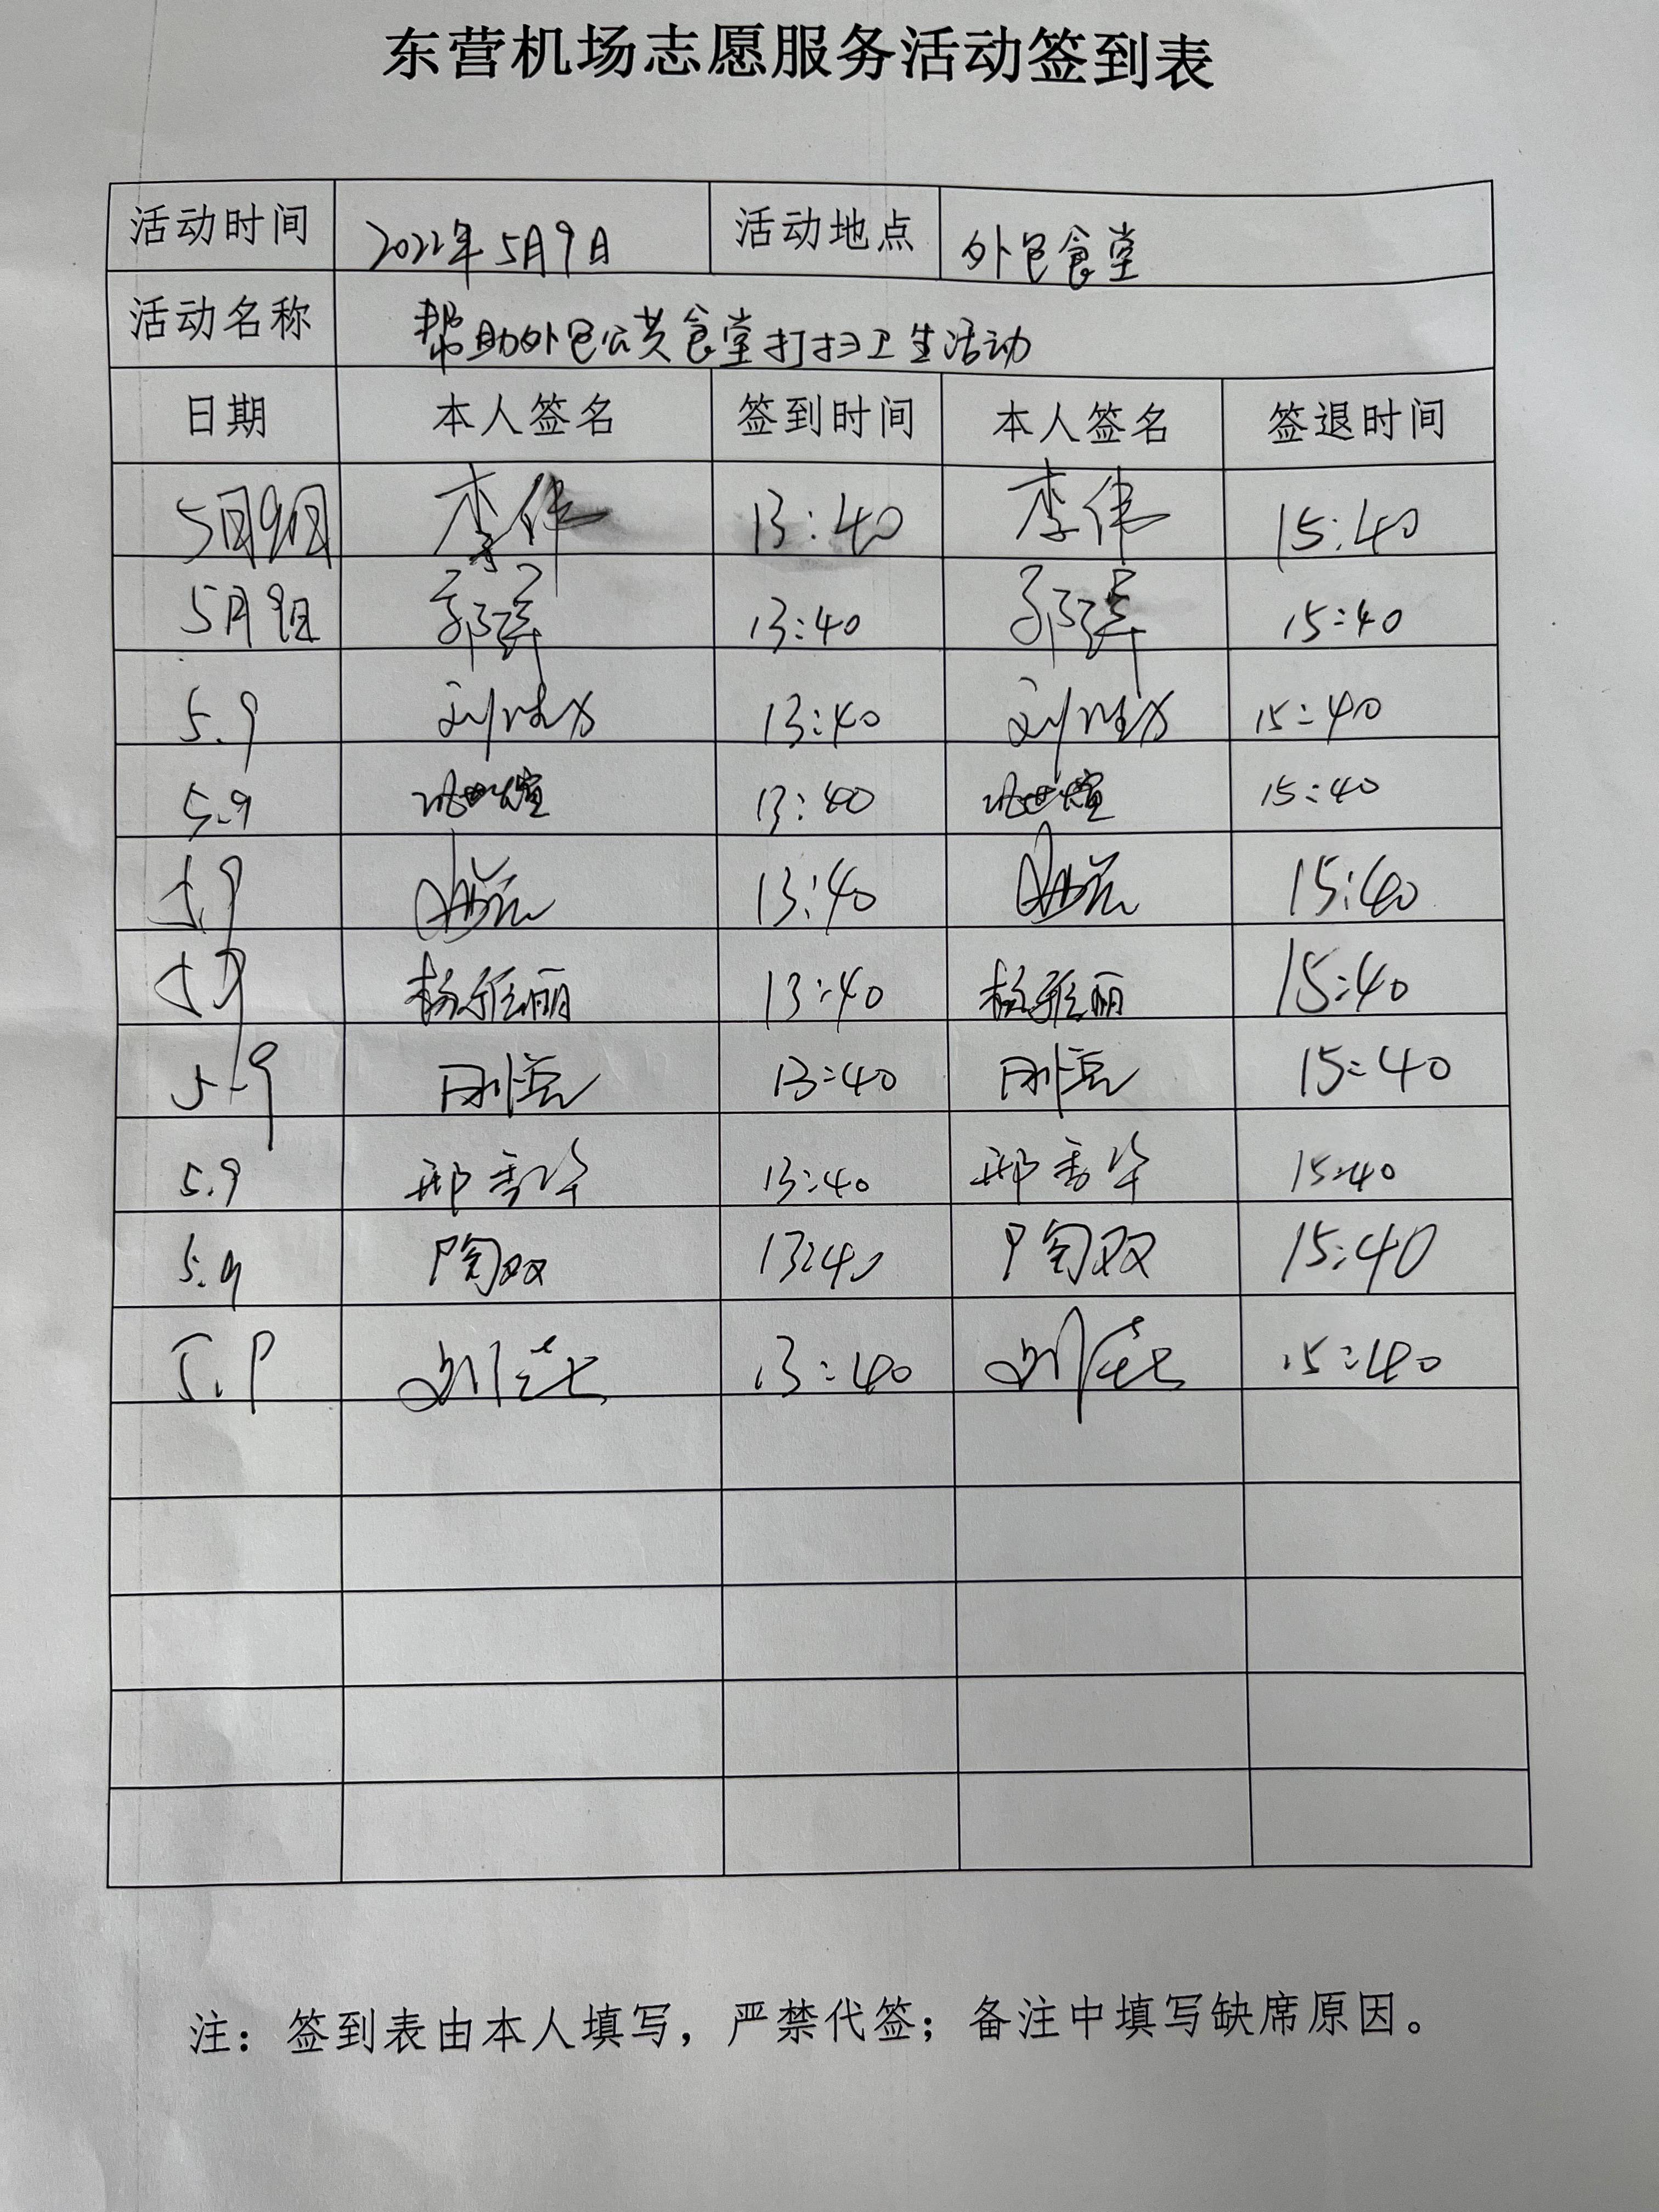 东营机场志愿服务活动签到表
活动时间 2022年5月9日 活动地点 外包食堂
活动名称 帮助外包公共食堂打扫卫生活动
日期 本人签名 签到时间 本人签名 签退时间
5月9日 李伟 13:40 李伟 15:40
5月9日 13:40 15:40
5.9 13:40 15:40
5.9 13:40 15:40
5.9 13:40 15:40
5.9 杨雅丽 13:40 杨雅丽 15:40
5.9 13:40 15:40
5.9 邢秀华 13:40 邢秀华 15:40
5.9 陶双 13:40 陶双 15:40
5.9 13:40 15:40
注：签到表由本人填写，严禁代签；备注中填写缺席原因。